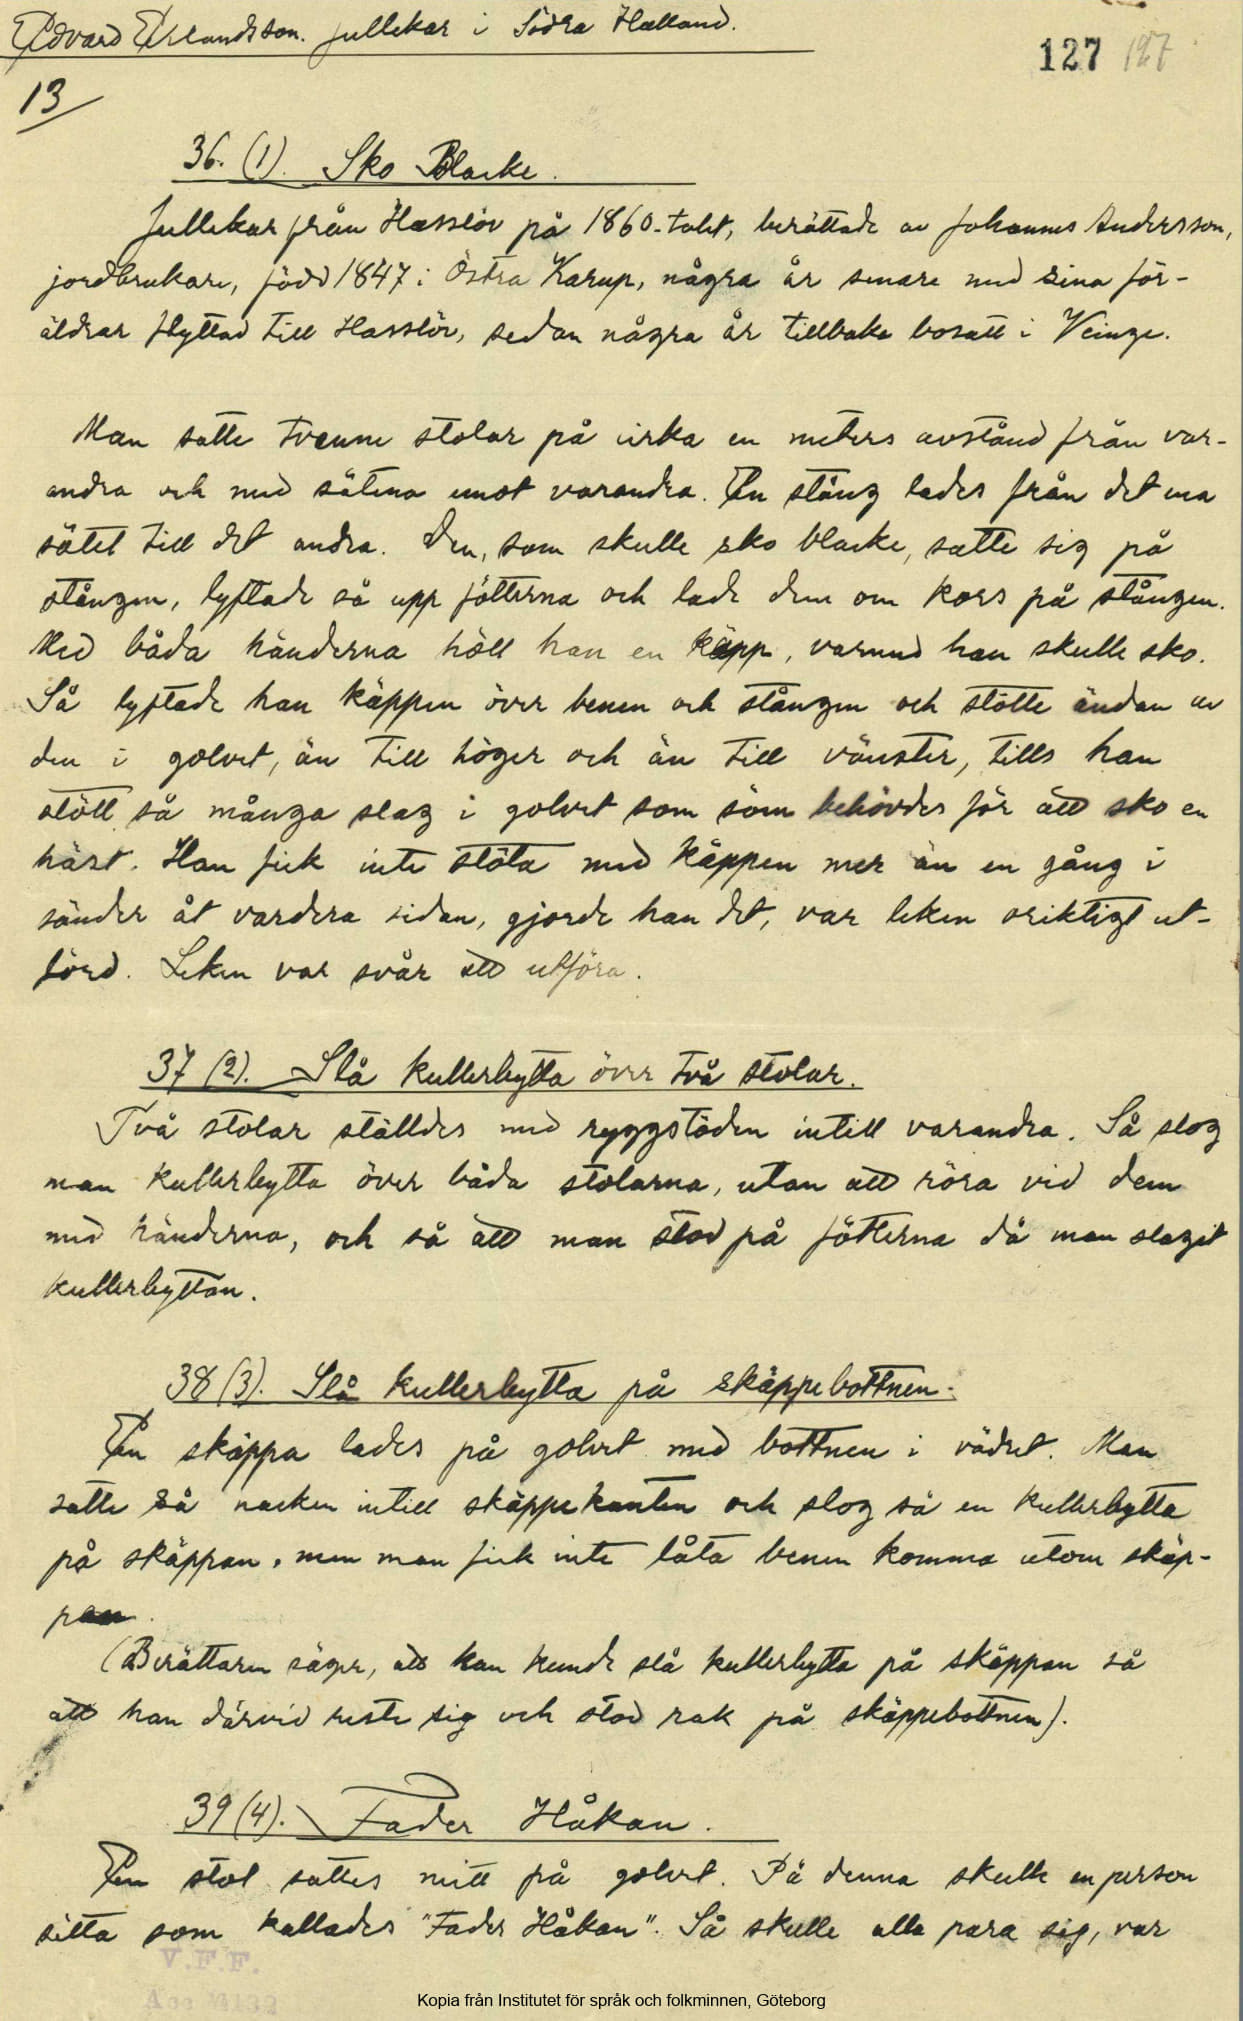 Edvard Erlandsson. Jullekar i Södra Halland.
127 127
13
36. (1). Sko Blacke.
Jullekar från Hasslöv på 1860-talet, berättade av Johannes Andersson,
jordbrukare, född 1847 i Östra Karup, några år senare med sina för-
äldrar flyttad till Hasslöv, sedan några år tillbaka bosatt i Veinge.
Man satte tvenne stolar på cirka en meters avstånd från var-
andra och med sätena emot varandra. En stång lades från det ena
sätet till det andra. Den, som skulle sko blacke, satte sig på
stången, lyftade så upp fötterna och lade dem om kors på stången.
Med båda händerna höll han en käpp, varmed han skulle sko.
Så lyftade han käppen över benen och stången och stötte ändan av
den i golvet, än till höger och än till vänster, tills han
stött så många slag i golvet som söm behövdes för att sko en
häst. Han fick inte stöta med käppen mer än en gång i
sänder åt vardera sidan, gjorde han det, var leken oriktigt ut-
förd. Leken var svår att utföra.
37 (2). Slå kullerbytta över två stolar.
Två stolar ställdes med ryggstöden intill varandra. Så slog
man kullerbytta över båda stolarna, utan att röra vid dem
med händerna, och så att man stod på fötterna då man slagit
kullerbyttan.
38 (3). Slå kullerbytta på skäppebottnen.
En skäppa lades på golvet med bottnen i vädret. Man
satte så nacken intill skäppekanten och slog så en kullerbytta
på skäppan, men man fick inte låta benen komma utom skäp-
pan.
(Berättaren säger, att han kunde slå kullerbytta på skäppan så
att han därvid reste sig och stod rak på skäppebottnen).
39 (4). Fader Håkan.
En stol sattes mitt på golvet. På denna skulle en person
sitta som kallades "Fader Håkan". Så skulle alla para sig, var
V.F.F.
Kopia från Institutet för språk och folkminnen, Göteborg